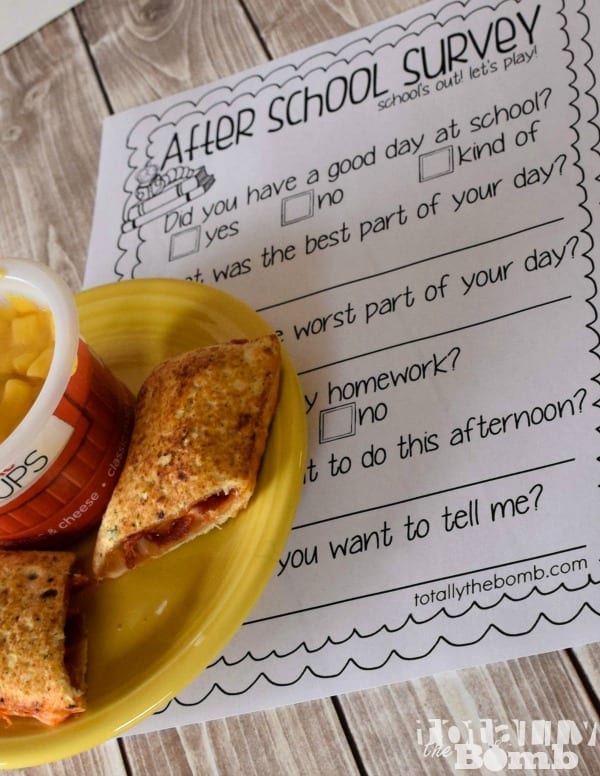 After School Survey
school's out! let's play!
Did you have a good day at school?
yes no kind of
was the best part of your day?
worst part of your day?
homework?
no
to do this afternoon?
you want to tell me?
totallythebomb.com
UPS
& cheese • classic
totally
the Bomb